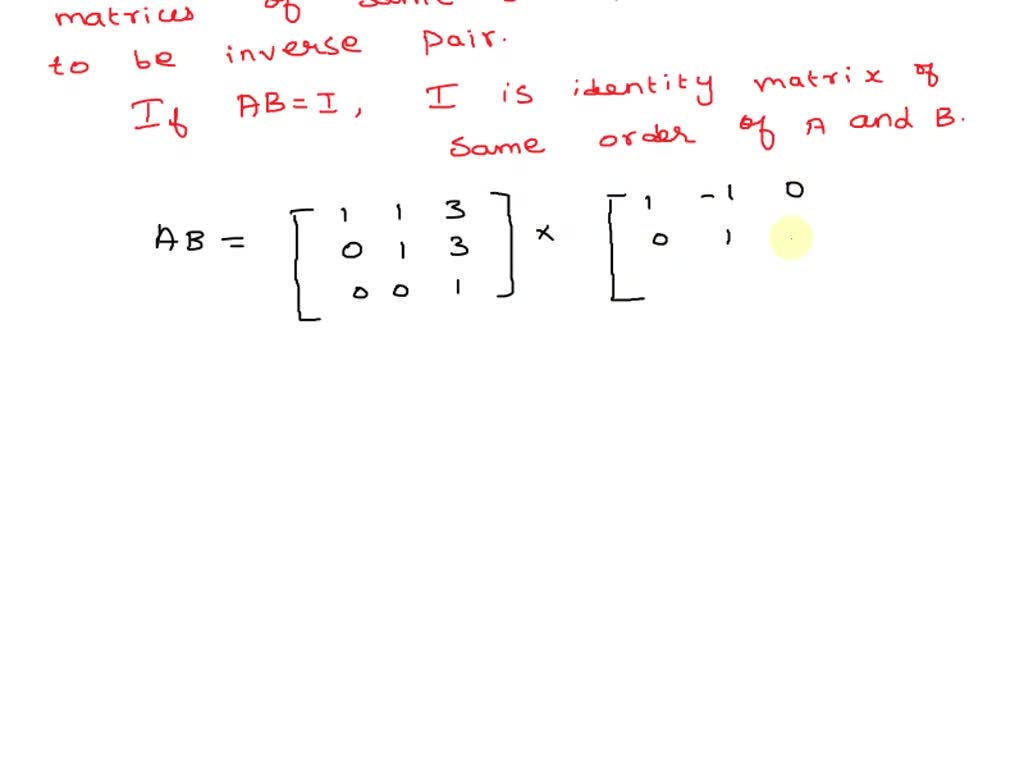 matrices of same
to be inverse pair.
If AB=I, I is identity matrix of
same order of A and B.
AB = [ 1 1 3 ] × [ 1 -1 0
0 1 3 0 1
0 0 1